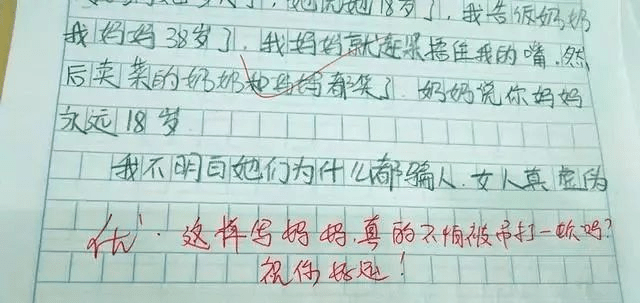 她说她18岁了,我告诉奶奶
我妈妈38岁了,我妈妈就赶紧捂住我的嘴,然
后卖菜的奶奶和妈妈都笑了,奶奶说你妈妈
永远18岁
我不明白她们为什么都骗人,女人真虚伪
优⁻.这样写妈妈,真的不怕被吊打一顿吗?
祝你好运!